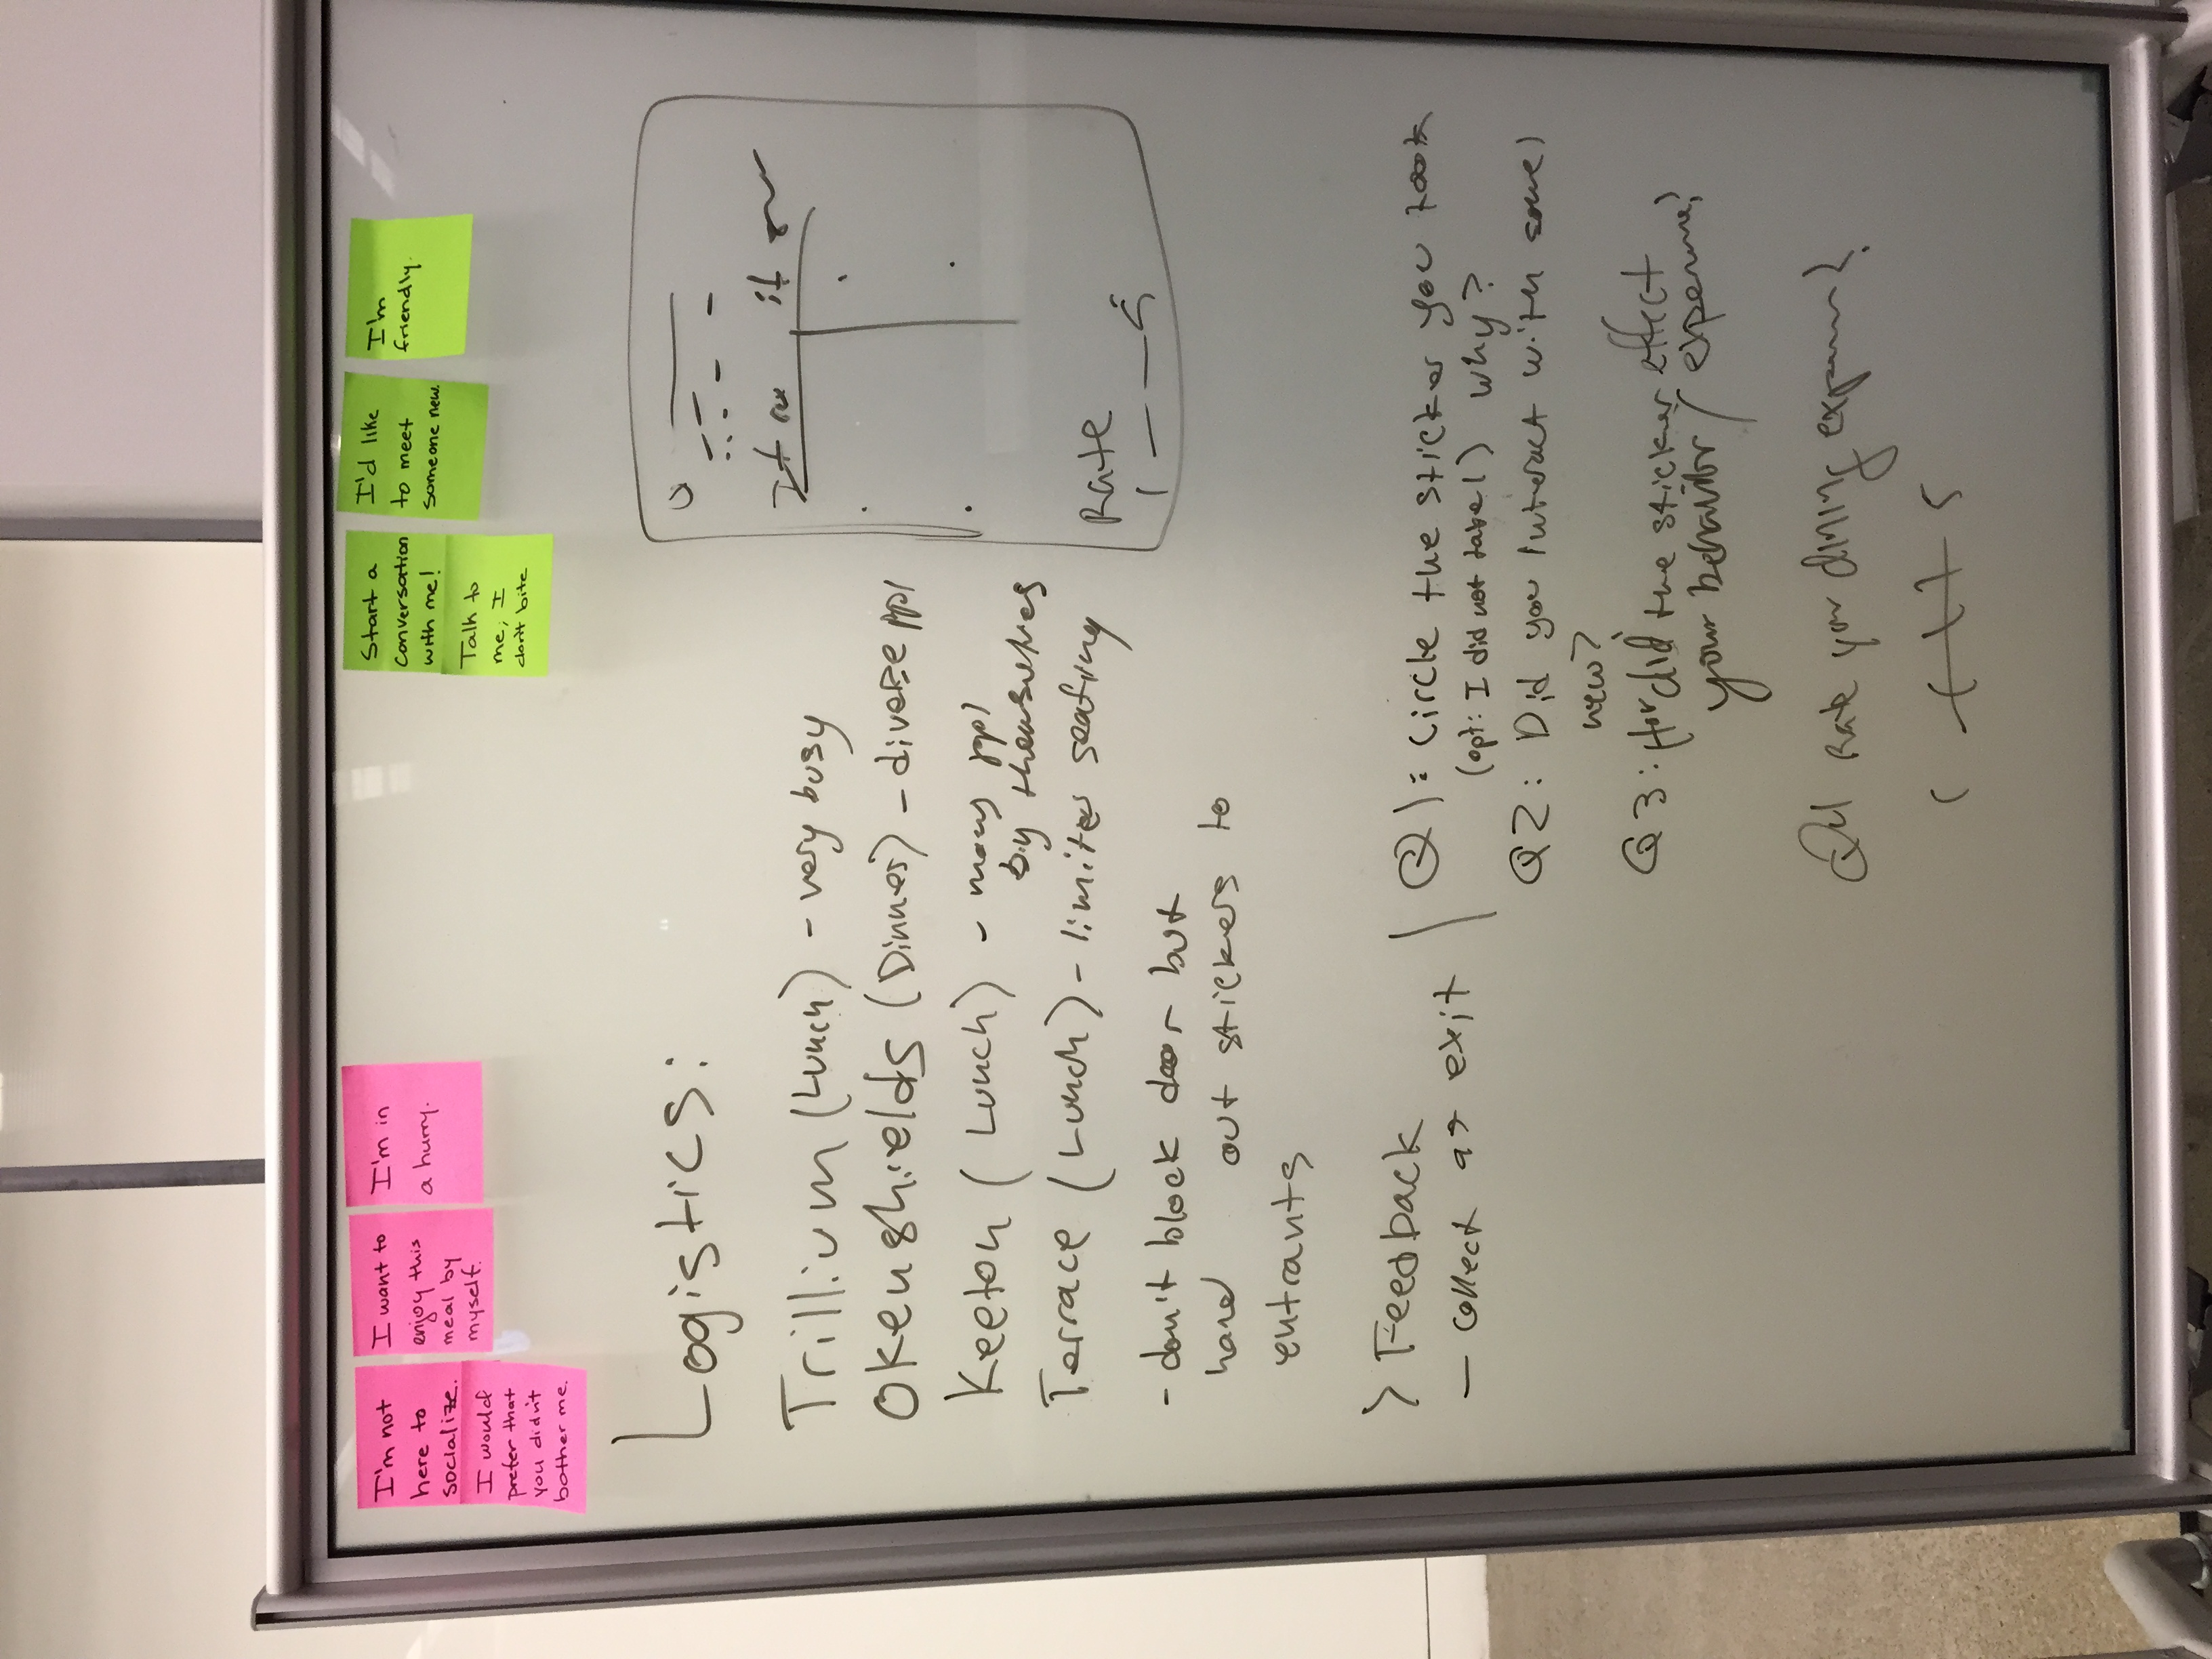 I'm not
here to
socialize.
I would
prefer that
you didn't
bother me.
I want to
enjoy this
meal by
myself.
I'm in
a hurry.
Start a
conversation
with me!
Talk to
me, I
don't bite
I'd like
to meet
someone new.
I'm
friendly.
Logistics:
Trillium (Lunch) - very busy
Okenshields (Dinner) - diverse ppl
Keeton (Lunch) - many ppl
by themselves
Terrace (Lunch) - limited seating
- don't block door but
hand out stickers to
entrants
Rate
1 — — 5
> Feedback
- collect at exit
Q1: Circle the sticker you took
(opt: I did not take 1) why?
Q2: Did you interact with some1
new?
Q3: How did the sticker effect
your behavior / experience?
Q4 Rate your dining experience?
1 5